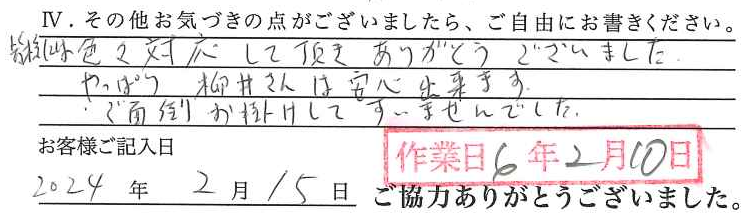 Ⅳ．その他お気づきの点がございましたら、ご自由にお書きください。
皆様には色々対応して頂きありがとうございました.
やっぱり 柳井さんは安心出来ます.
ご面倒お掛けしてすいませんでした.
お客様ご記入日
作業日6年2月10日
2024年 2月15日 ご協力ありがとうございました。